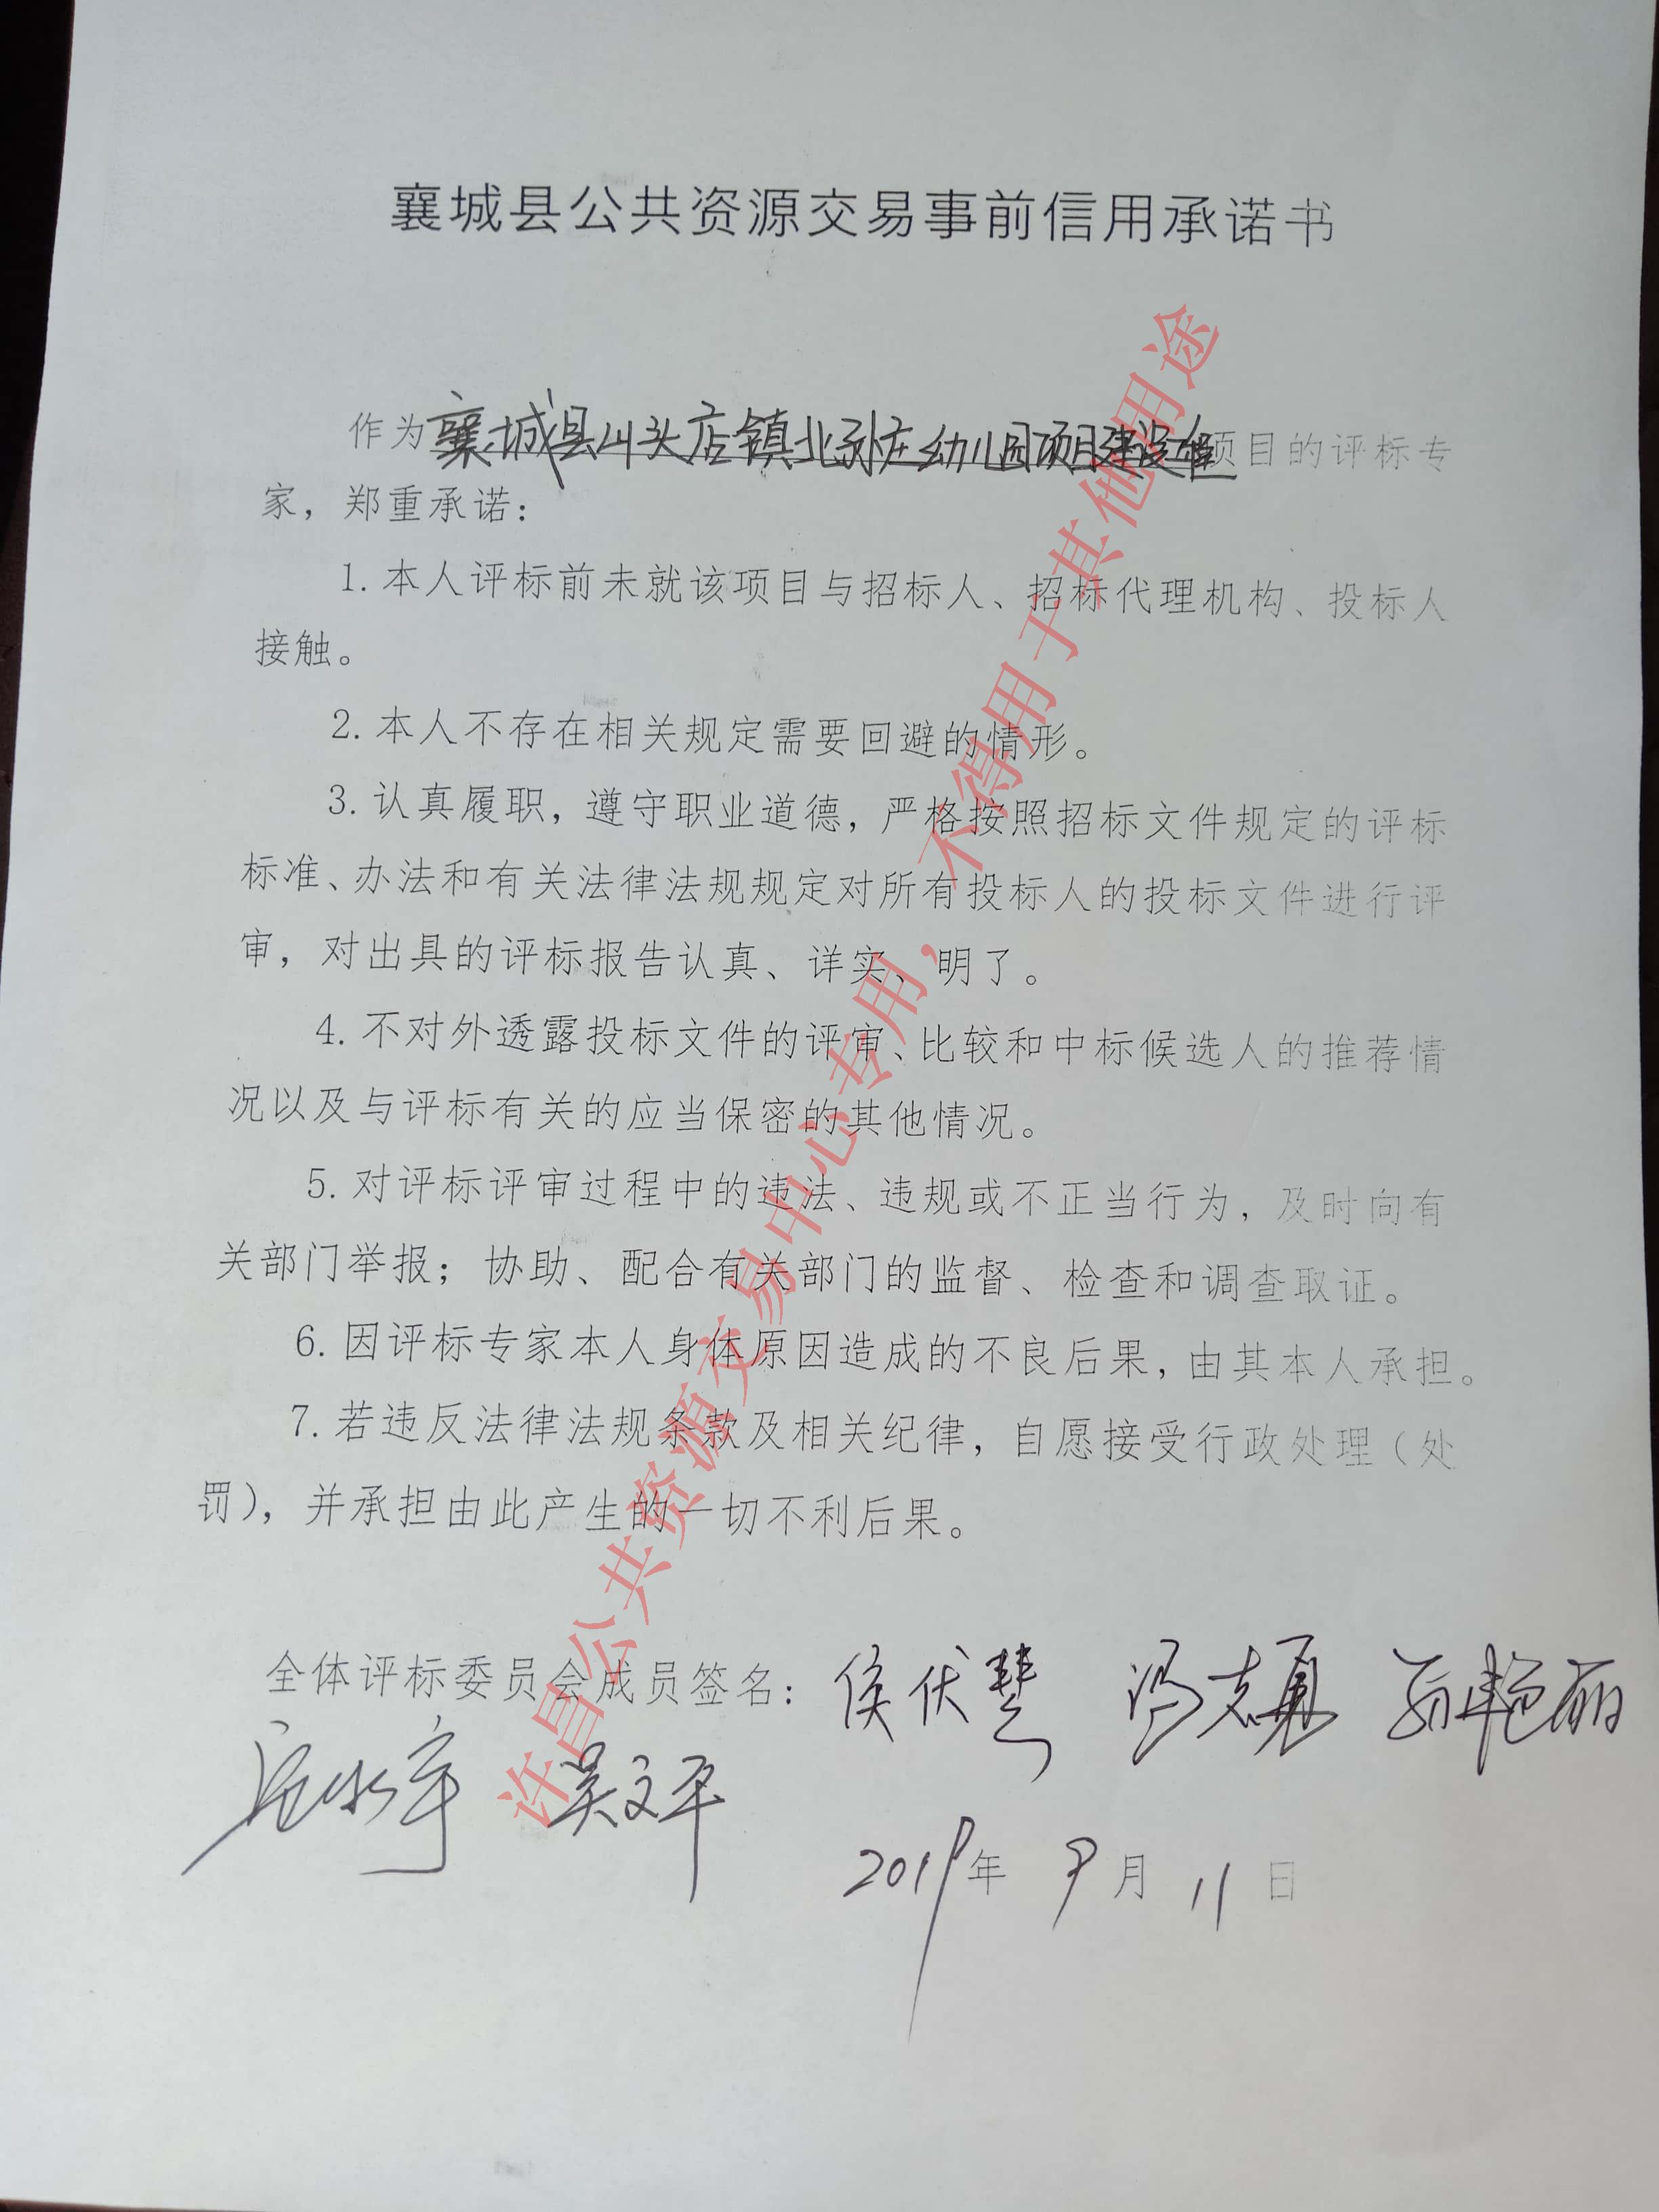 襄城县公共资源交易事前信用承诺书
作为襄城县山头店镇北孙庄幼儿园项目建设工程项目的评标专
家，郑重承诺：
1.本人评标前未就该项目与招标人、招标代理机构、投标人
接触。
2.本人不存在相关规定需要回避的情形。
3.认真履职，遵守职业道德，严格按照招标文件规定的评标
标准、办法和有关法律法规规定对所有投标人的投标文件进行评
审，对出具的评标报告认真、详实、明了。
4.不对外透露投标文件的评审、比较和中标候选人的推荐情
况以及与评标有关的应当保密的其他情况。
5.对评标评审过程中的违法、违规或不正当行为，及时向有
关部门举报；协助、配合有关部门的监督、检查和调查取证。
6.因评标专家本人身体原因造成的不良后果，由其本人承担。
7.若违反法律法规条款及相关纪律，自愿接受行政处理（处
罚），并承担由此产生的一切不利后果。
全体评标委员会成员签名：侯伏慧 冯志勇 孙艳丽
吴文平
2019年9月11日
许昌公共资源交易中心专用，不得用于其他用途